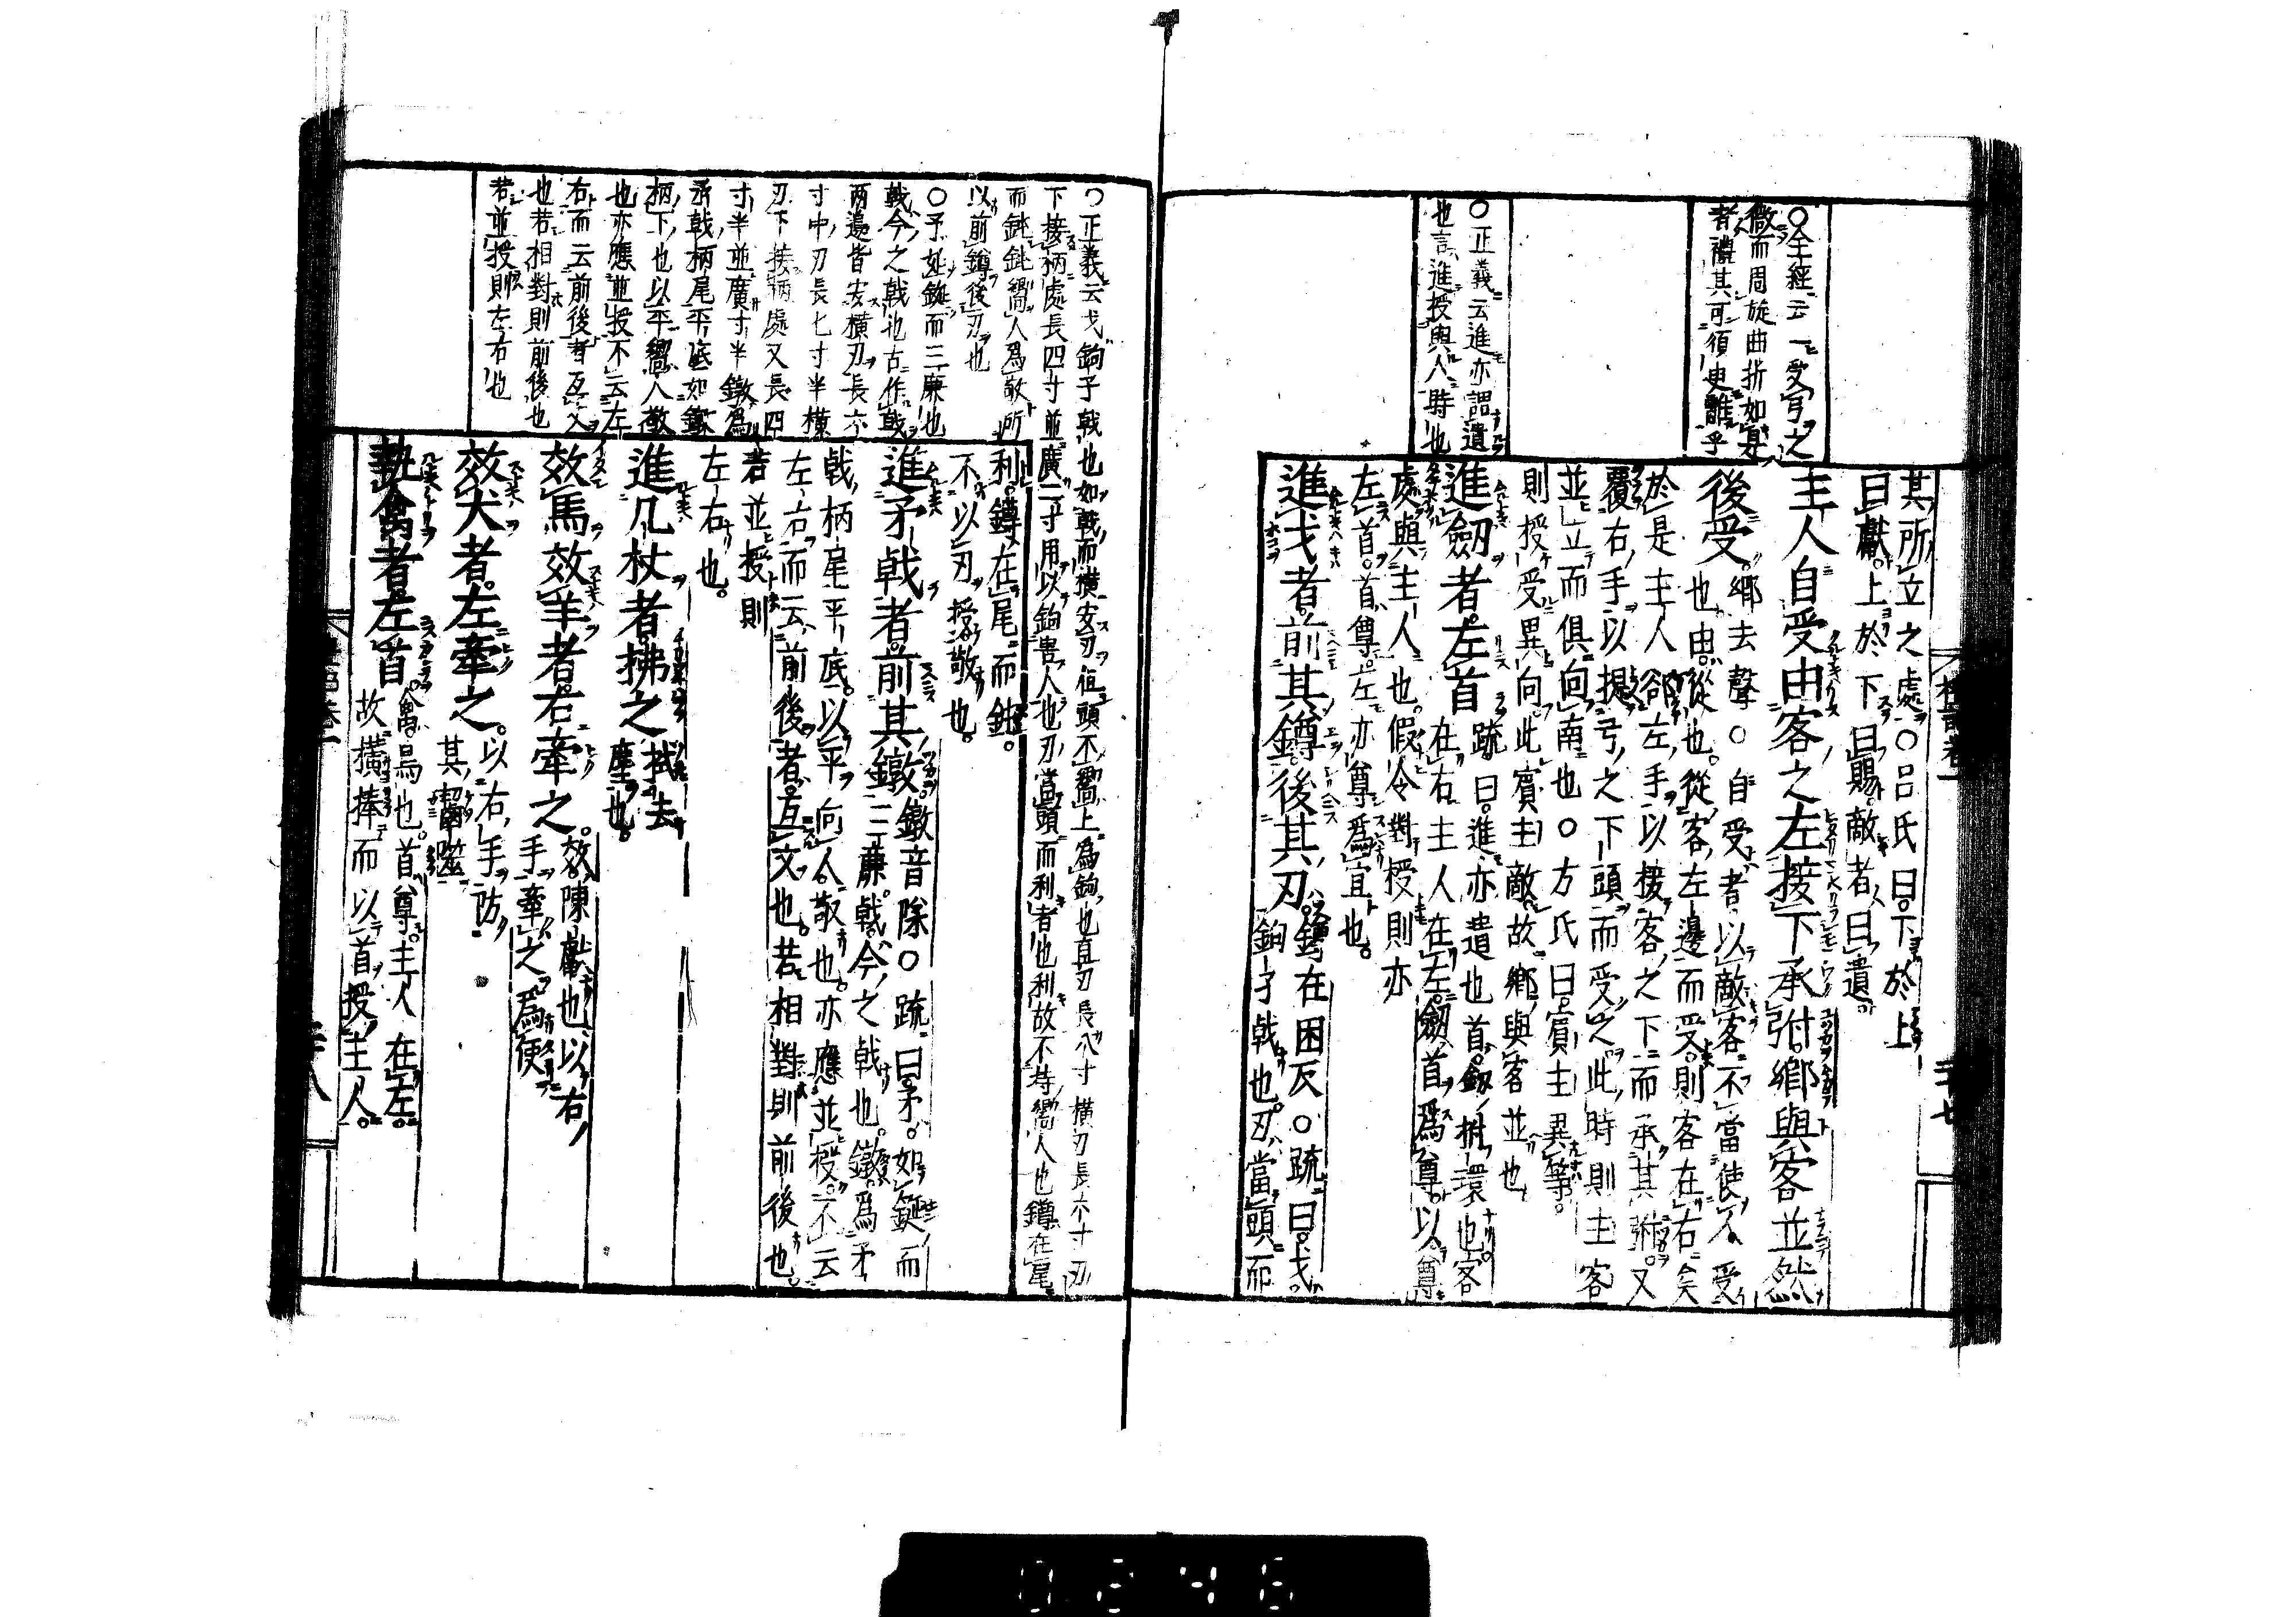 其所立之處○呂氏曰下於上
曰獻上於下曰賜敵者曰遺
主人自受由客之左接下承弣鄉與客並然
後受鄉去聲○自受者以敵客不當使人受
也由從也從客左邊而受則客在右矣
於是主人卻左手以接客之下而承其弣又
覆右手以捉弓之下頭而受之此時則主客
並立而俱向南也○方氏曰賓主異等
則授受異向此賓主敵故鄉與客並也
進劒者左首疏曰進亦遣也首劒拊環也客
在右主人在左劒首爲尊以尊
處與主人也假令對授則亦
左首首尊左亦尊爲宜也
進戈者前其鐏後其刃鐏在困反○疏曰戈
鉤孑戟也刃當頭而
○全經云一受弓之
微而周旋曲折如是
者禮其可須臾離乎
○正義云進亦謂遺
也言進授與人時也
利鐏在尾而鈍
不以刃授敬也
進矛戟者前其鐓鐓音隊○疏曰矛如鋋而
三廉戟今之戟也鐓爲矛
戟柄尾平底以平向人敬也亦應並授不云
左右而云前後者互文也若相對則前後也
若並授則
左右也
進几杖者拂之拭去
塵也
效馬效羊者右牽之效陳獻也以右
手牽之爲便
效犬者左牽之以右手防
其齧噬
執禽者左首禽鳥也首尊主人在左
故橫捧而以首授主人
○正義云戈鉤孑戟也如戟而橫安刃但頭不嚮上爲鉤也直刃長八寸橫刃長六寸刃
下接柄處長四寸並廣二寸用以鉤害人也刃當頭而利者也利故不持嚮人也鐏在尾
而鈍鈍嚮人爲敬所
以前鐏後刃也
○矛如鋋而三廉也
戟今之戟也古作戟
兩邊皆安橫刃長六
寸中刃長七寸半橫
刃下接柄處又長四
寸半並廣寸半鐓爲
矛戟柄尾平底如鐓
柄下也以平嚮人敬
也亦應並授不云左
右而云前後者互文
也若相對則前後也
若並授則左右也
0246